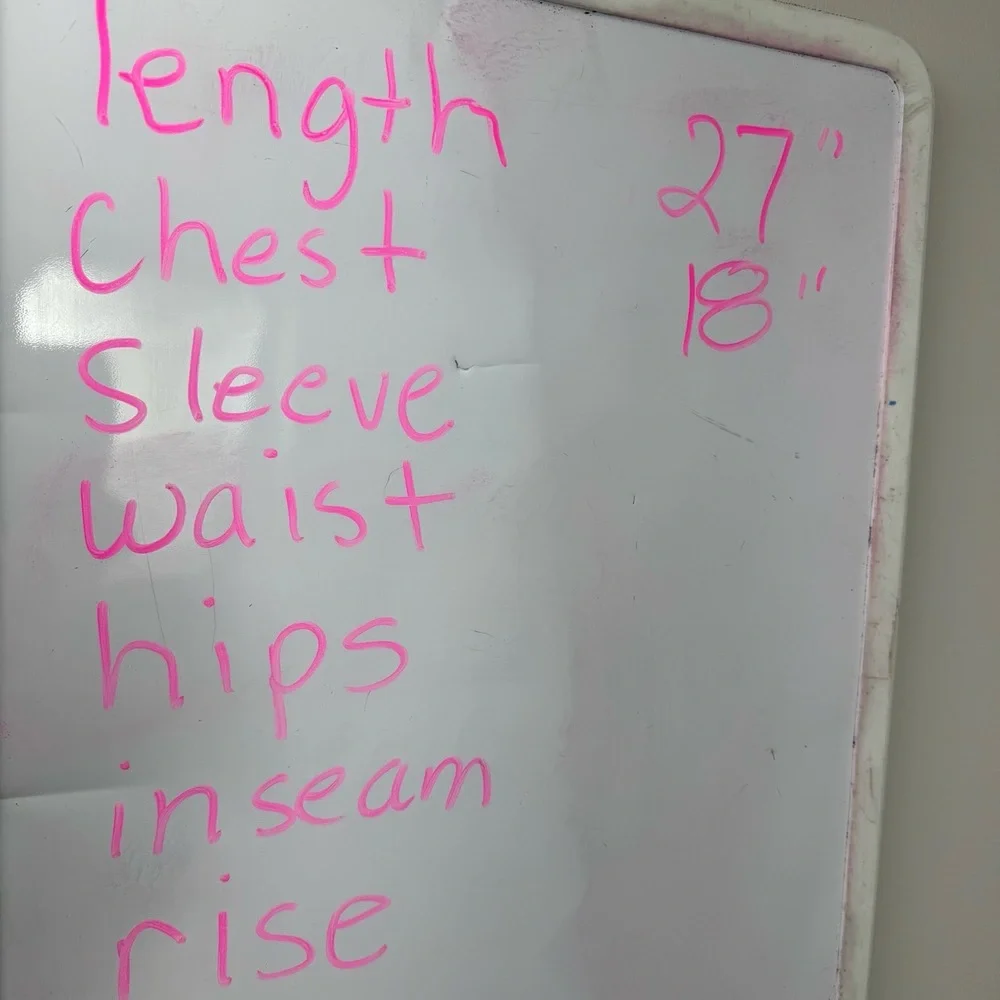 length 27"
Chest 18"
Sleeve
waist
hips
inseam
rise